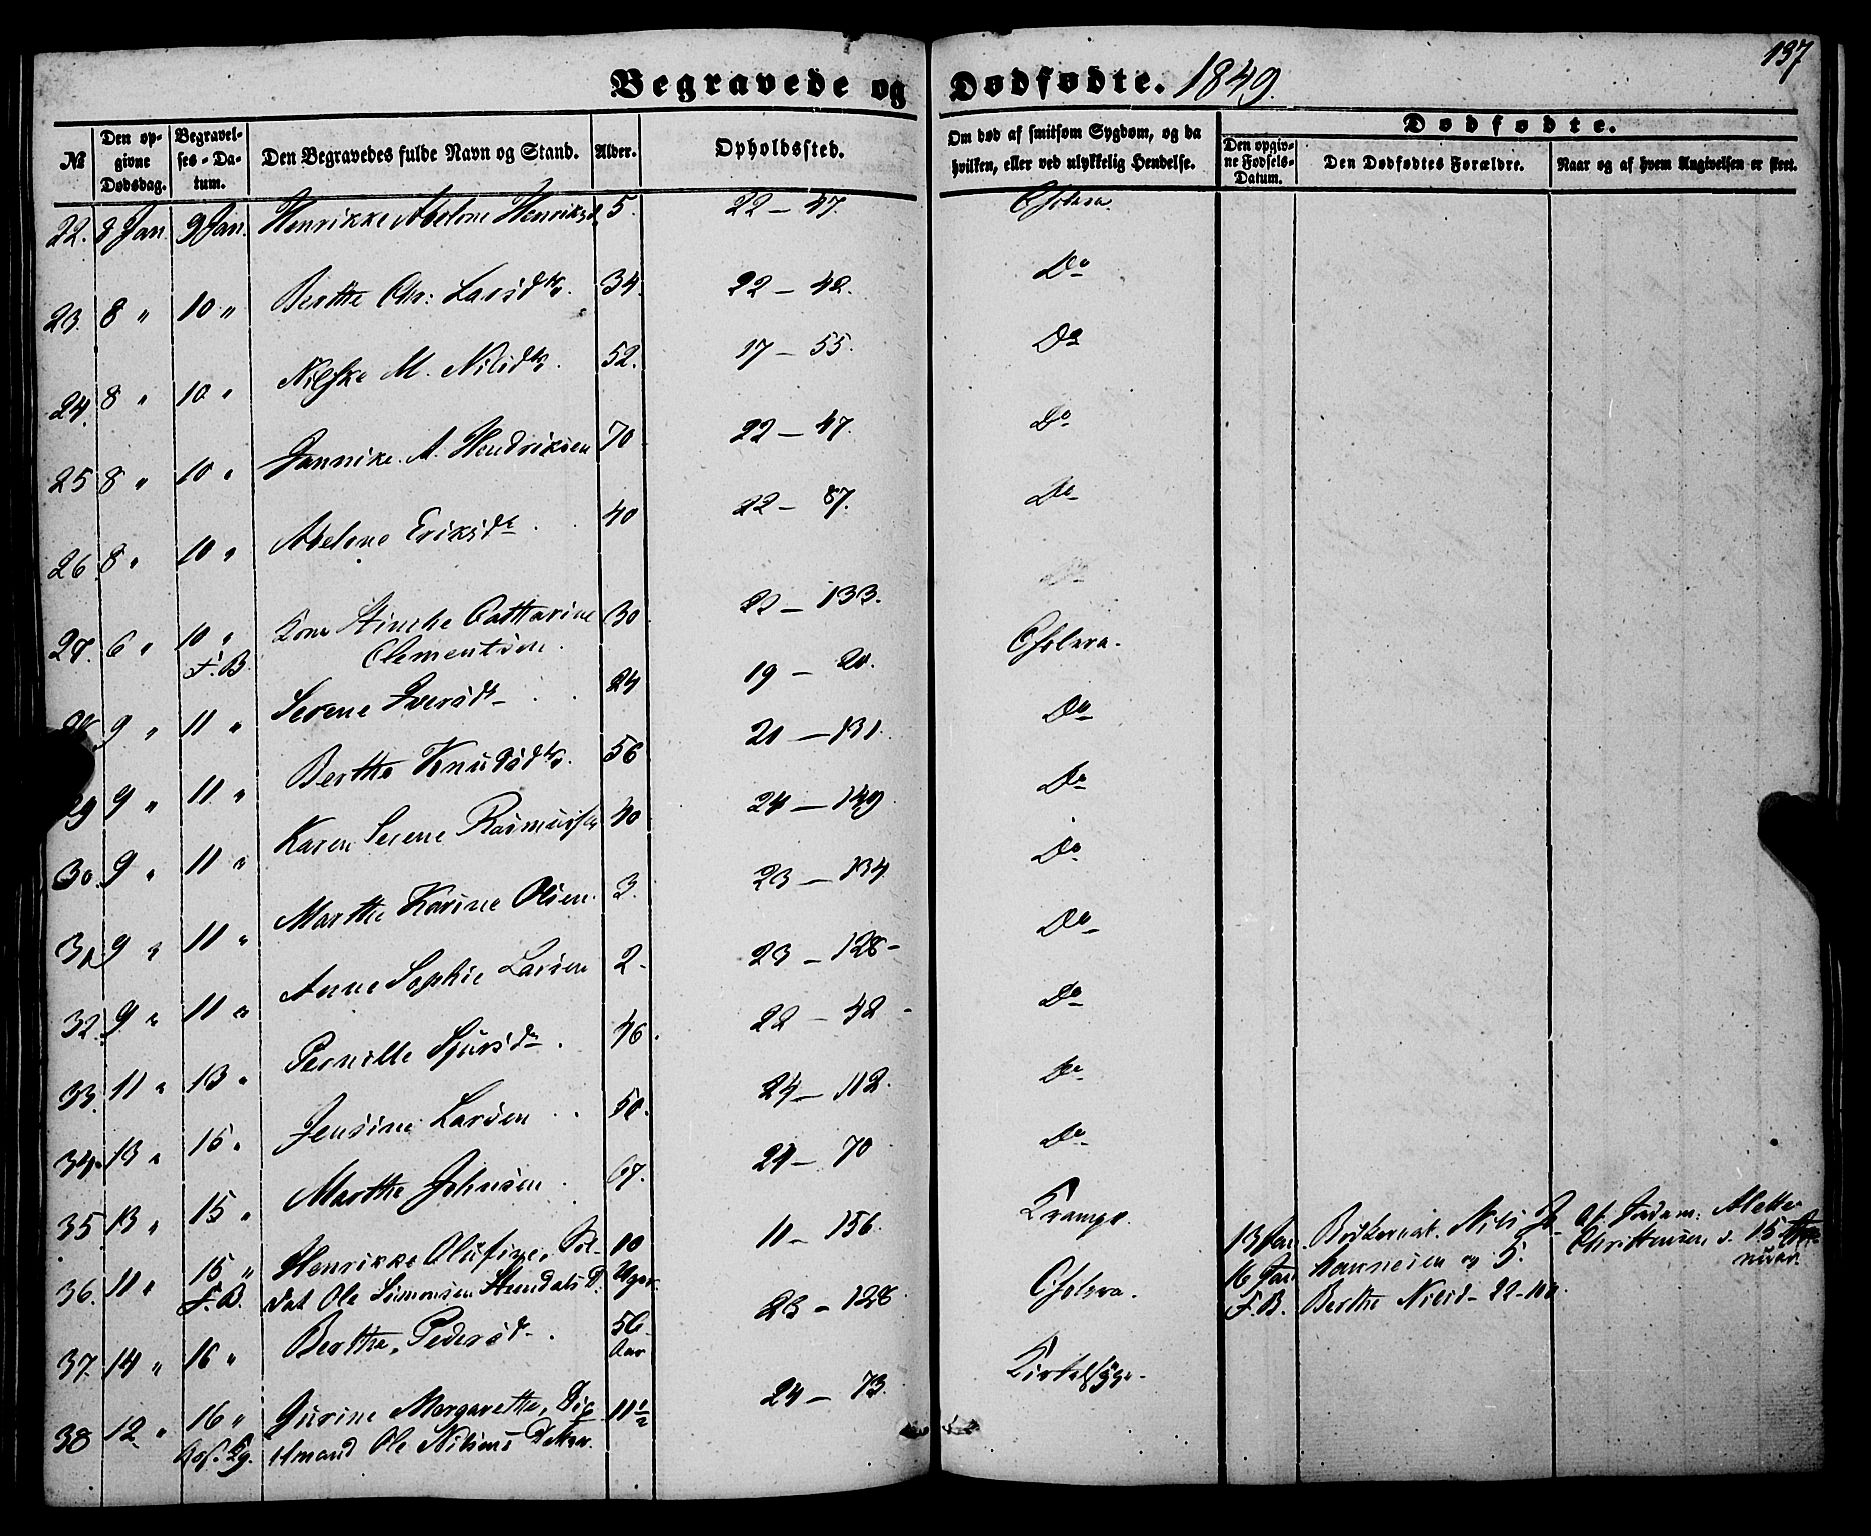 197
Begravede og Dødfødte. 1849.
№ | Den opgivne Dødsdag. | Begravelses-Datum. | Den Begravedes fulde Navn og Stand. | Alder. | Opholdssted. | Om død af smitsom Sygdom, og da hvilken, eller ved ulykkelig Hendelse. | Dødfødte. | Den opgivne Fødsels-Datum. | Den Dødfødtes Forældre. | Naar og af hvem Angivelsen er skeet.
22. 8 Jan 9 Jan. Henrikke Abelone Henriksd. 5. 22 – 47. Cholera.
23. 8 " 10 " Berthe Chr: Larsdtr. 34. 22 – 42. Do
24. 8 " 10 " Nilske M. Nilsdtr. 52. 17 – 55. Do
25 8 " 10 " Jannike A. Hendriksen 70 22 – 47. Do
26 8 " 10 " Abelone Eriksdr 40 22 – 87. Do
27. 6 " 10 " Kone Stinche Catharine 30 – 133. Cholera.
F. B. Clementsen.
9 " 11 " Serene Iversdr 24 19 – 20.
29 9 " 11 " Berthe Knudsdtr. 56 21 – 131. Do
30 9 " 11 " Karen Serene Rasmussen 40 24 – 149 Do
31 9 " 11 " Marthe Karine Olsen. 3. 23 – 134 Do
32. 9 " 11 " Anne Sophie Larsen 2 – 23 – 128 – Do
33. 11 " 13 " Pernille Sjursdr. 46. 22 – 42 – Do
34. 13 " 15 " Jensine Larsen 50. 24 – 112. Do
35 13 " 15 " Marthe Johnsen 67. 24 – 70 Do
36. 11 " 15 " Henrikke Olufine, Sol- 10 11 – 156. Krampe. 13 Jan. Nils Jo- Af Jordem: Mette
F. B. dat Ole Simonsen Stendals D. Uger. 16 Jan hannesen og Christensen d. 15 Ja-
nuar.
37. 14 " 16 " Berthe, Pedersdr. 56 Aar 23 – 128 Cholera. F. B. Berthe Nilsd – 22 – 100.
38 12 " 16 " Gurine Margarethe, Dig- 11½ 24 – 73. Kirtelsyge.
mand Ole Nilsens Datter.